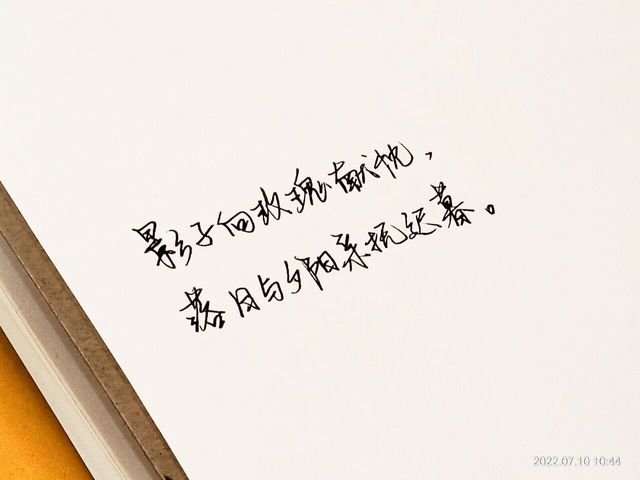 影子向玫瑰献忱，
落日与夕阳抚迟暮。
2022.07.10 10:44